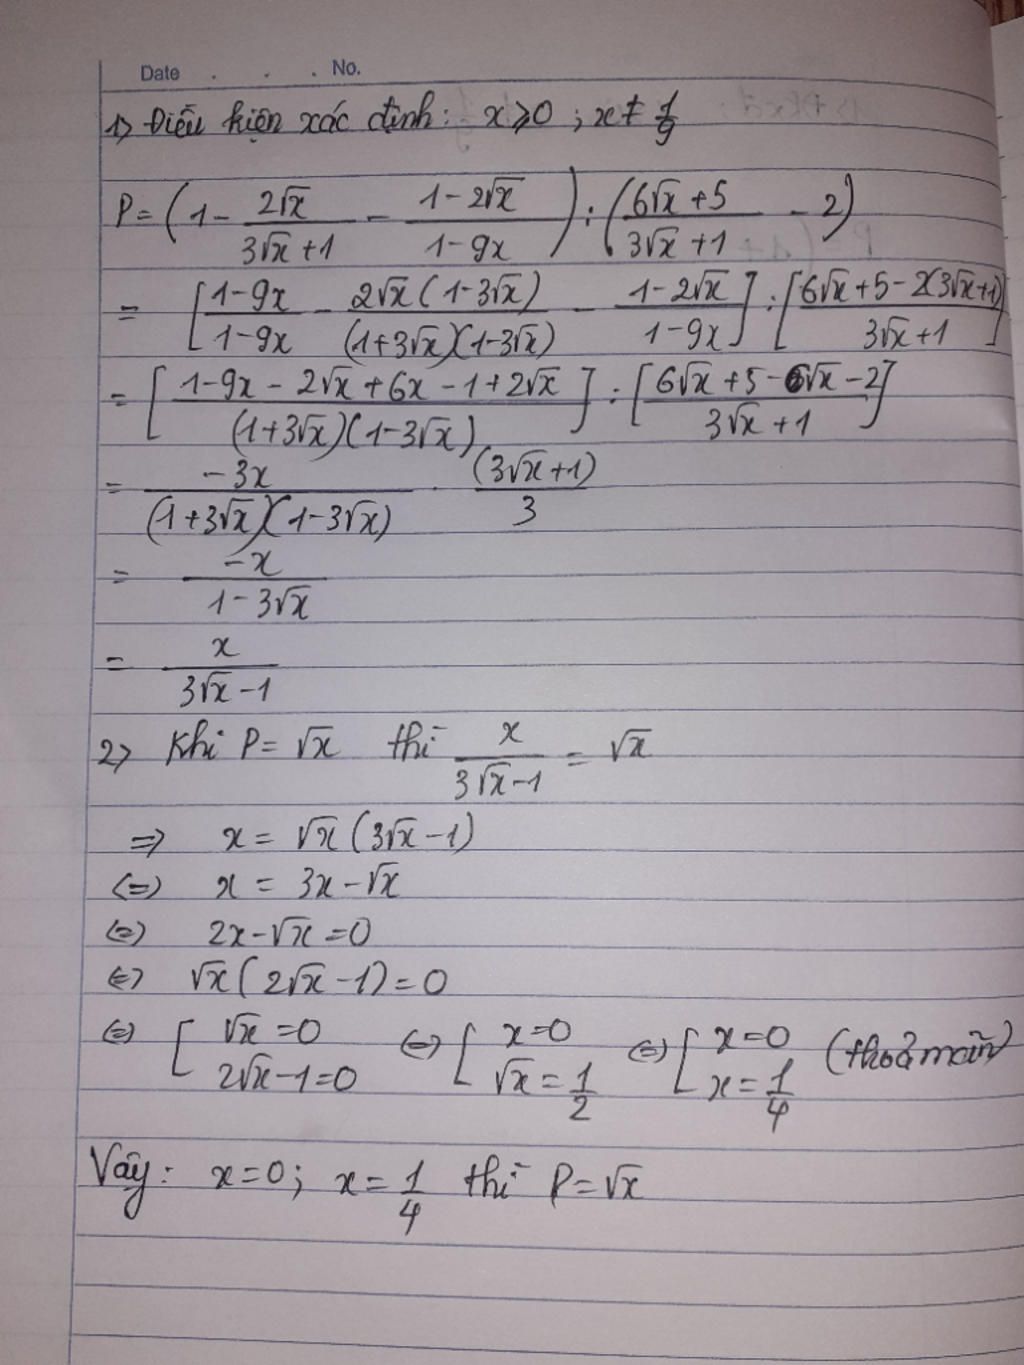 Date . . . No.
1) Điều kiện xác định: x ≥ 0 ; x ≠ 1/9
P = (1 - 2√x/(3√x + 1) - (1 - 2√x)/(1 - 9x)) : ((6√x + 5)/(3√x + 1) - 2)
= [(1 - 9x)/(1 - 9x) - 2√x(1 - 3√x)/((1 + 3√x)(1 - 3√x)) - (1 - 2√x)/(1 - 9x)] : [(6√x + 5 - 2(3√x + 1))/(3√x + 1)]
= [(1 - 9x - 2√x + 6x - 1 + 2√x)/((1 + 3√x)(1 - 3√x))] : [(6√x + 5 - 6√x - 2)/(3√x + 1)]
= -3x/((1 + 3√x)(1 - 3√x)) . (3√x + 1)/3
= -x/(1 - 3√x)
= x/(3√x - 1)
2) Khi P = √x thì x/(3√x - 1) = √x
⇒ x = √x(3√x - 1)
⇔ x = 3x - √x
⇔ 2x - √x = 0
⇔ √x(2√x - 1) = 0
⇔ [√x = 0 ; 2√x - 1 = 0 ⇔ [x = 0 ; √x = 1/2 ⇔ [x = 0 ; x = 1/4 (thoả mãn)
Vậy: x = 0; x = 1/4 thì P = √x